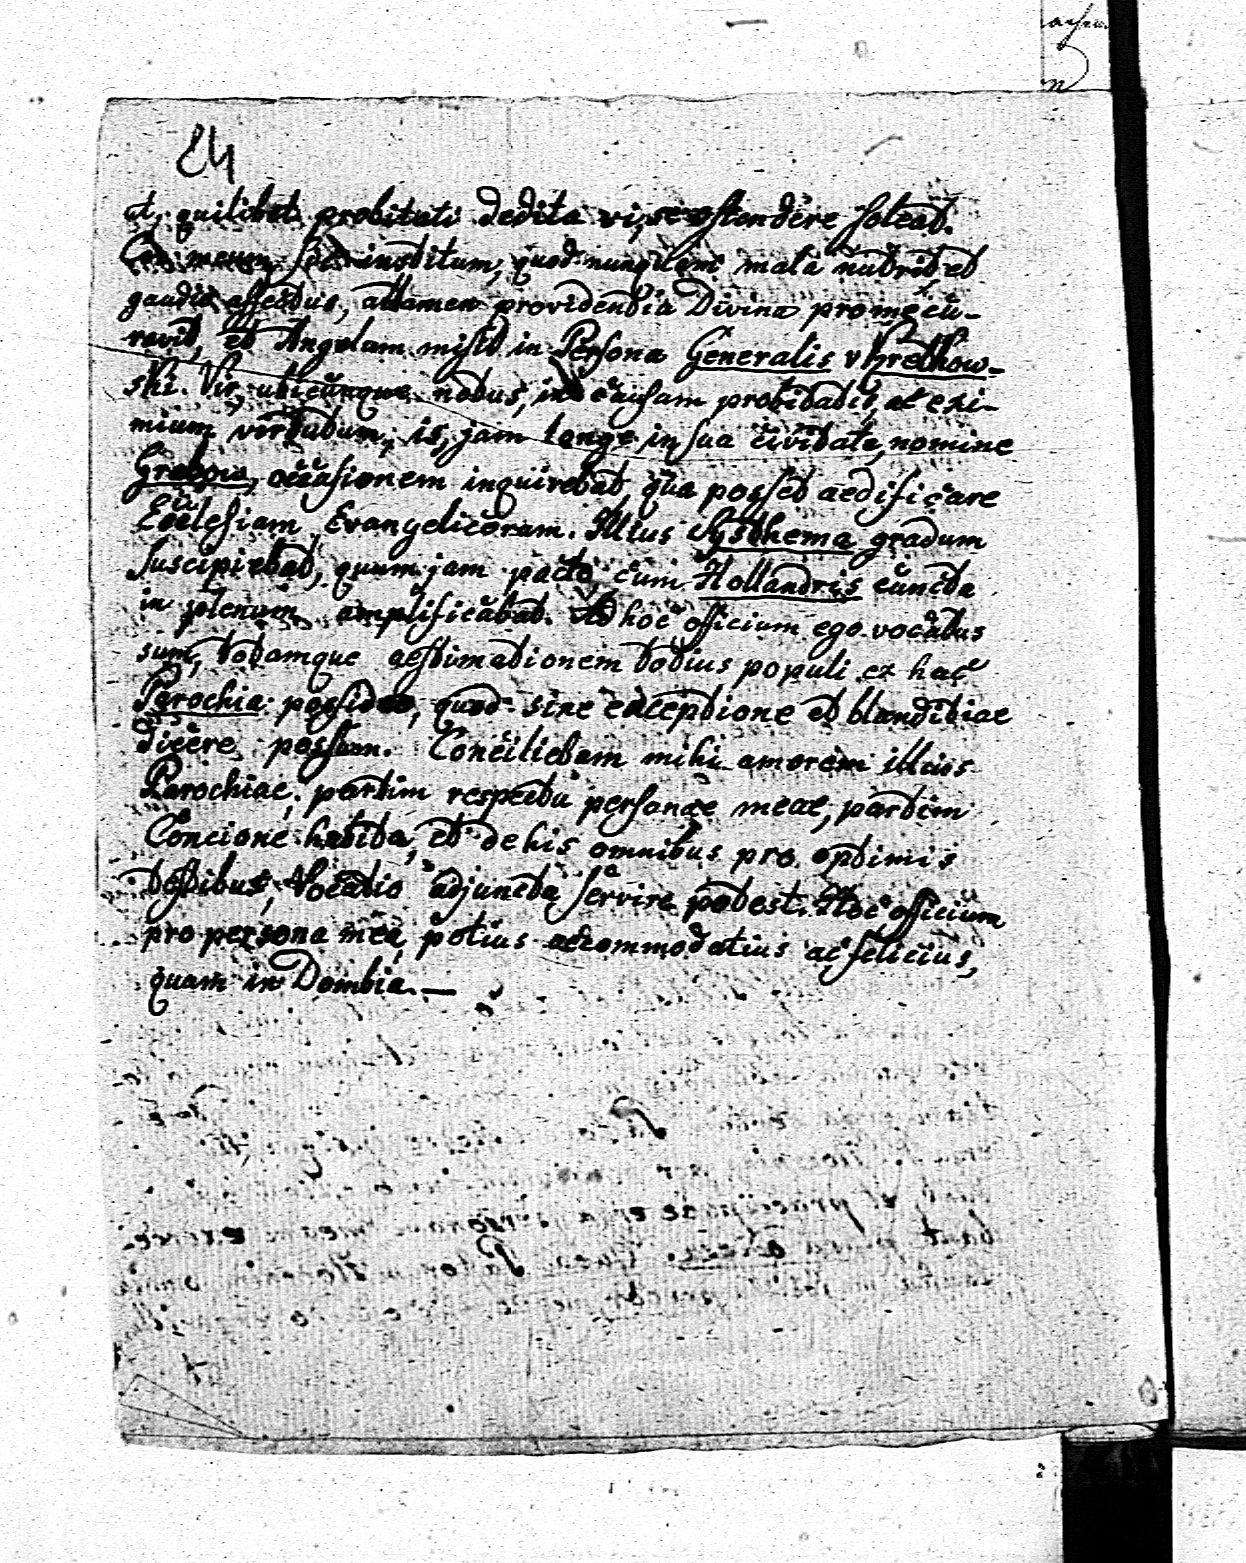 24
ut, quilibet probitati dedita vi, se ostendere soleat.
Cor meum sed insolitum, quod nunquam mala nutrit et
gaudio affectus, attamen providentia Divina pro me cu-
ravit, et Angelum misit in Persona Generalis v
ski. Vir, ubicunque notus, in causam probitatis, ac exi-
mium virtutum; is, jam longe in sua civitate, nomine
Grabow, occasionem inquirebat, qua posset aedificare
Ecclesiam Evangelicorum. Illius Systhema gradum
suscipiebat, quum jam pacto cum Hollandris cuncta
in plenum amplificabat. Ad hoc officium ego vocatus
sum, totamque aestimationem totius populi ex hac
Parochia possideo, quod sine exceptione et blanditiae
dicere possum. Conciliebam mihi amorem illius
Parochiae, partim respectu personae meae, partim
Concione habita, et de his omnibus pro optimis
testibus, Vocatio adjuncta servire potest. Hoc officium
pro persona mea, potius accommodatius ac felicius,
quam in Dombia. —